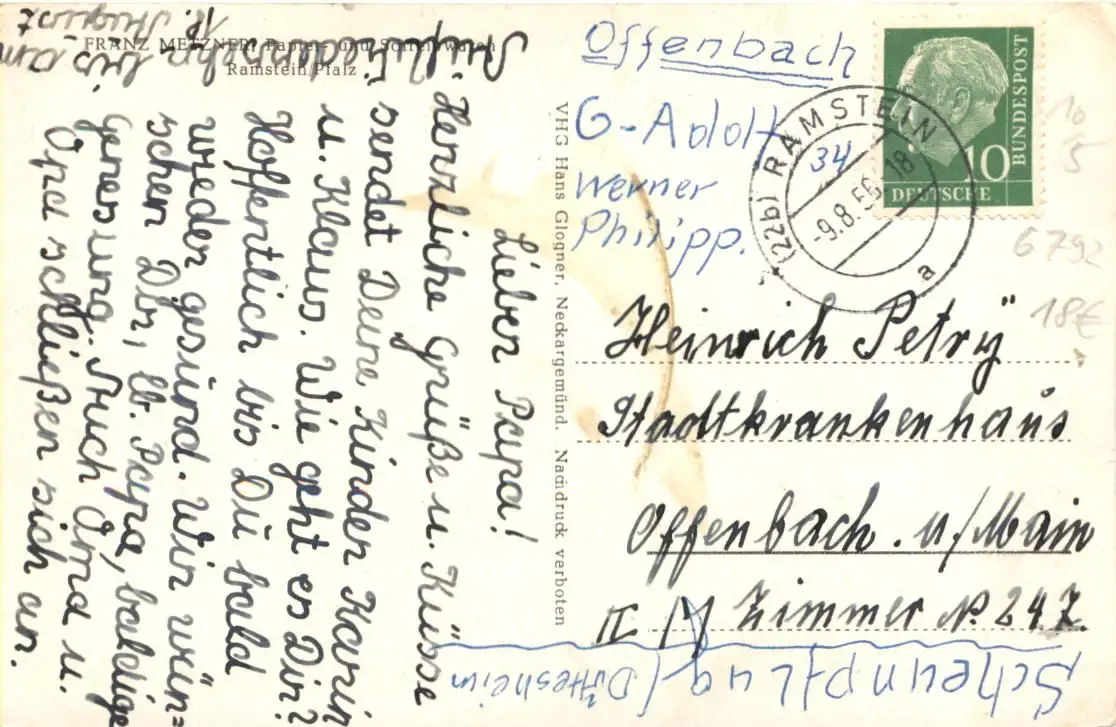 FRANZ METZNER, Papier- und Schreibwaren
Ramstein Pfalz
Lieber Papa!
Herrliche Grüße u. Küsse
sendet Deine Kinder Karin
u. Klaus. Wie geht es Dir?
Hoffentlich bis Du bald
wieder gesund. Wir wün=
schen Dir, lb. Papa, baldige
Genesung. Auch Oma u.
Opa schließen sich an.
Auf Wiedersehn bis am
12. August
VHG Hans Glogner, Neckargemünd. Nachdruck verboten
Offenbach
G-Adolf
34
Werner
Philipp.
(22b) RAMSTEIN
-9.8.56 18
a
DEUTSCHE
BUNDESPOST
10
10
5
6792
18€
Heinrich Petry
Stadtkrankenhaus
Offenbach. a/Main
II Zimmer No. 247.
Scheunpflug/Dittesheim